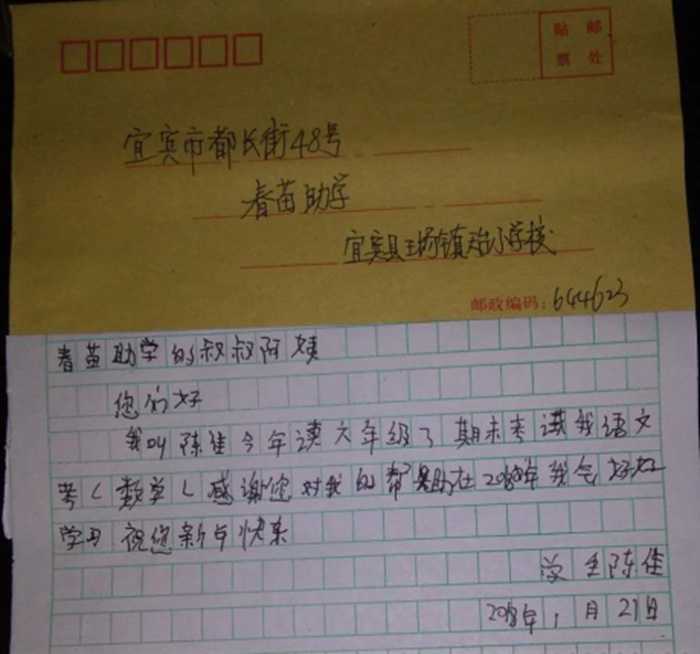 贴邮
票处
宜宾市都长街48号
春苗助学
宜宾县王场镇治小学校
邮政编码：644623
春苗助学的叔叔阿姨
您们好
我叫陈佳今年读六年级了期末考试我语文
考 数学 感谢您对我的帮助在2018年我会好好
学习祝您新年快乐
学生陈佳
2018年1月21日